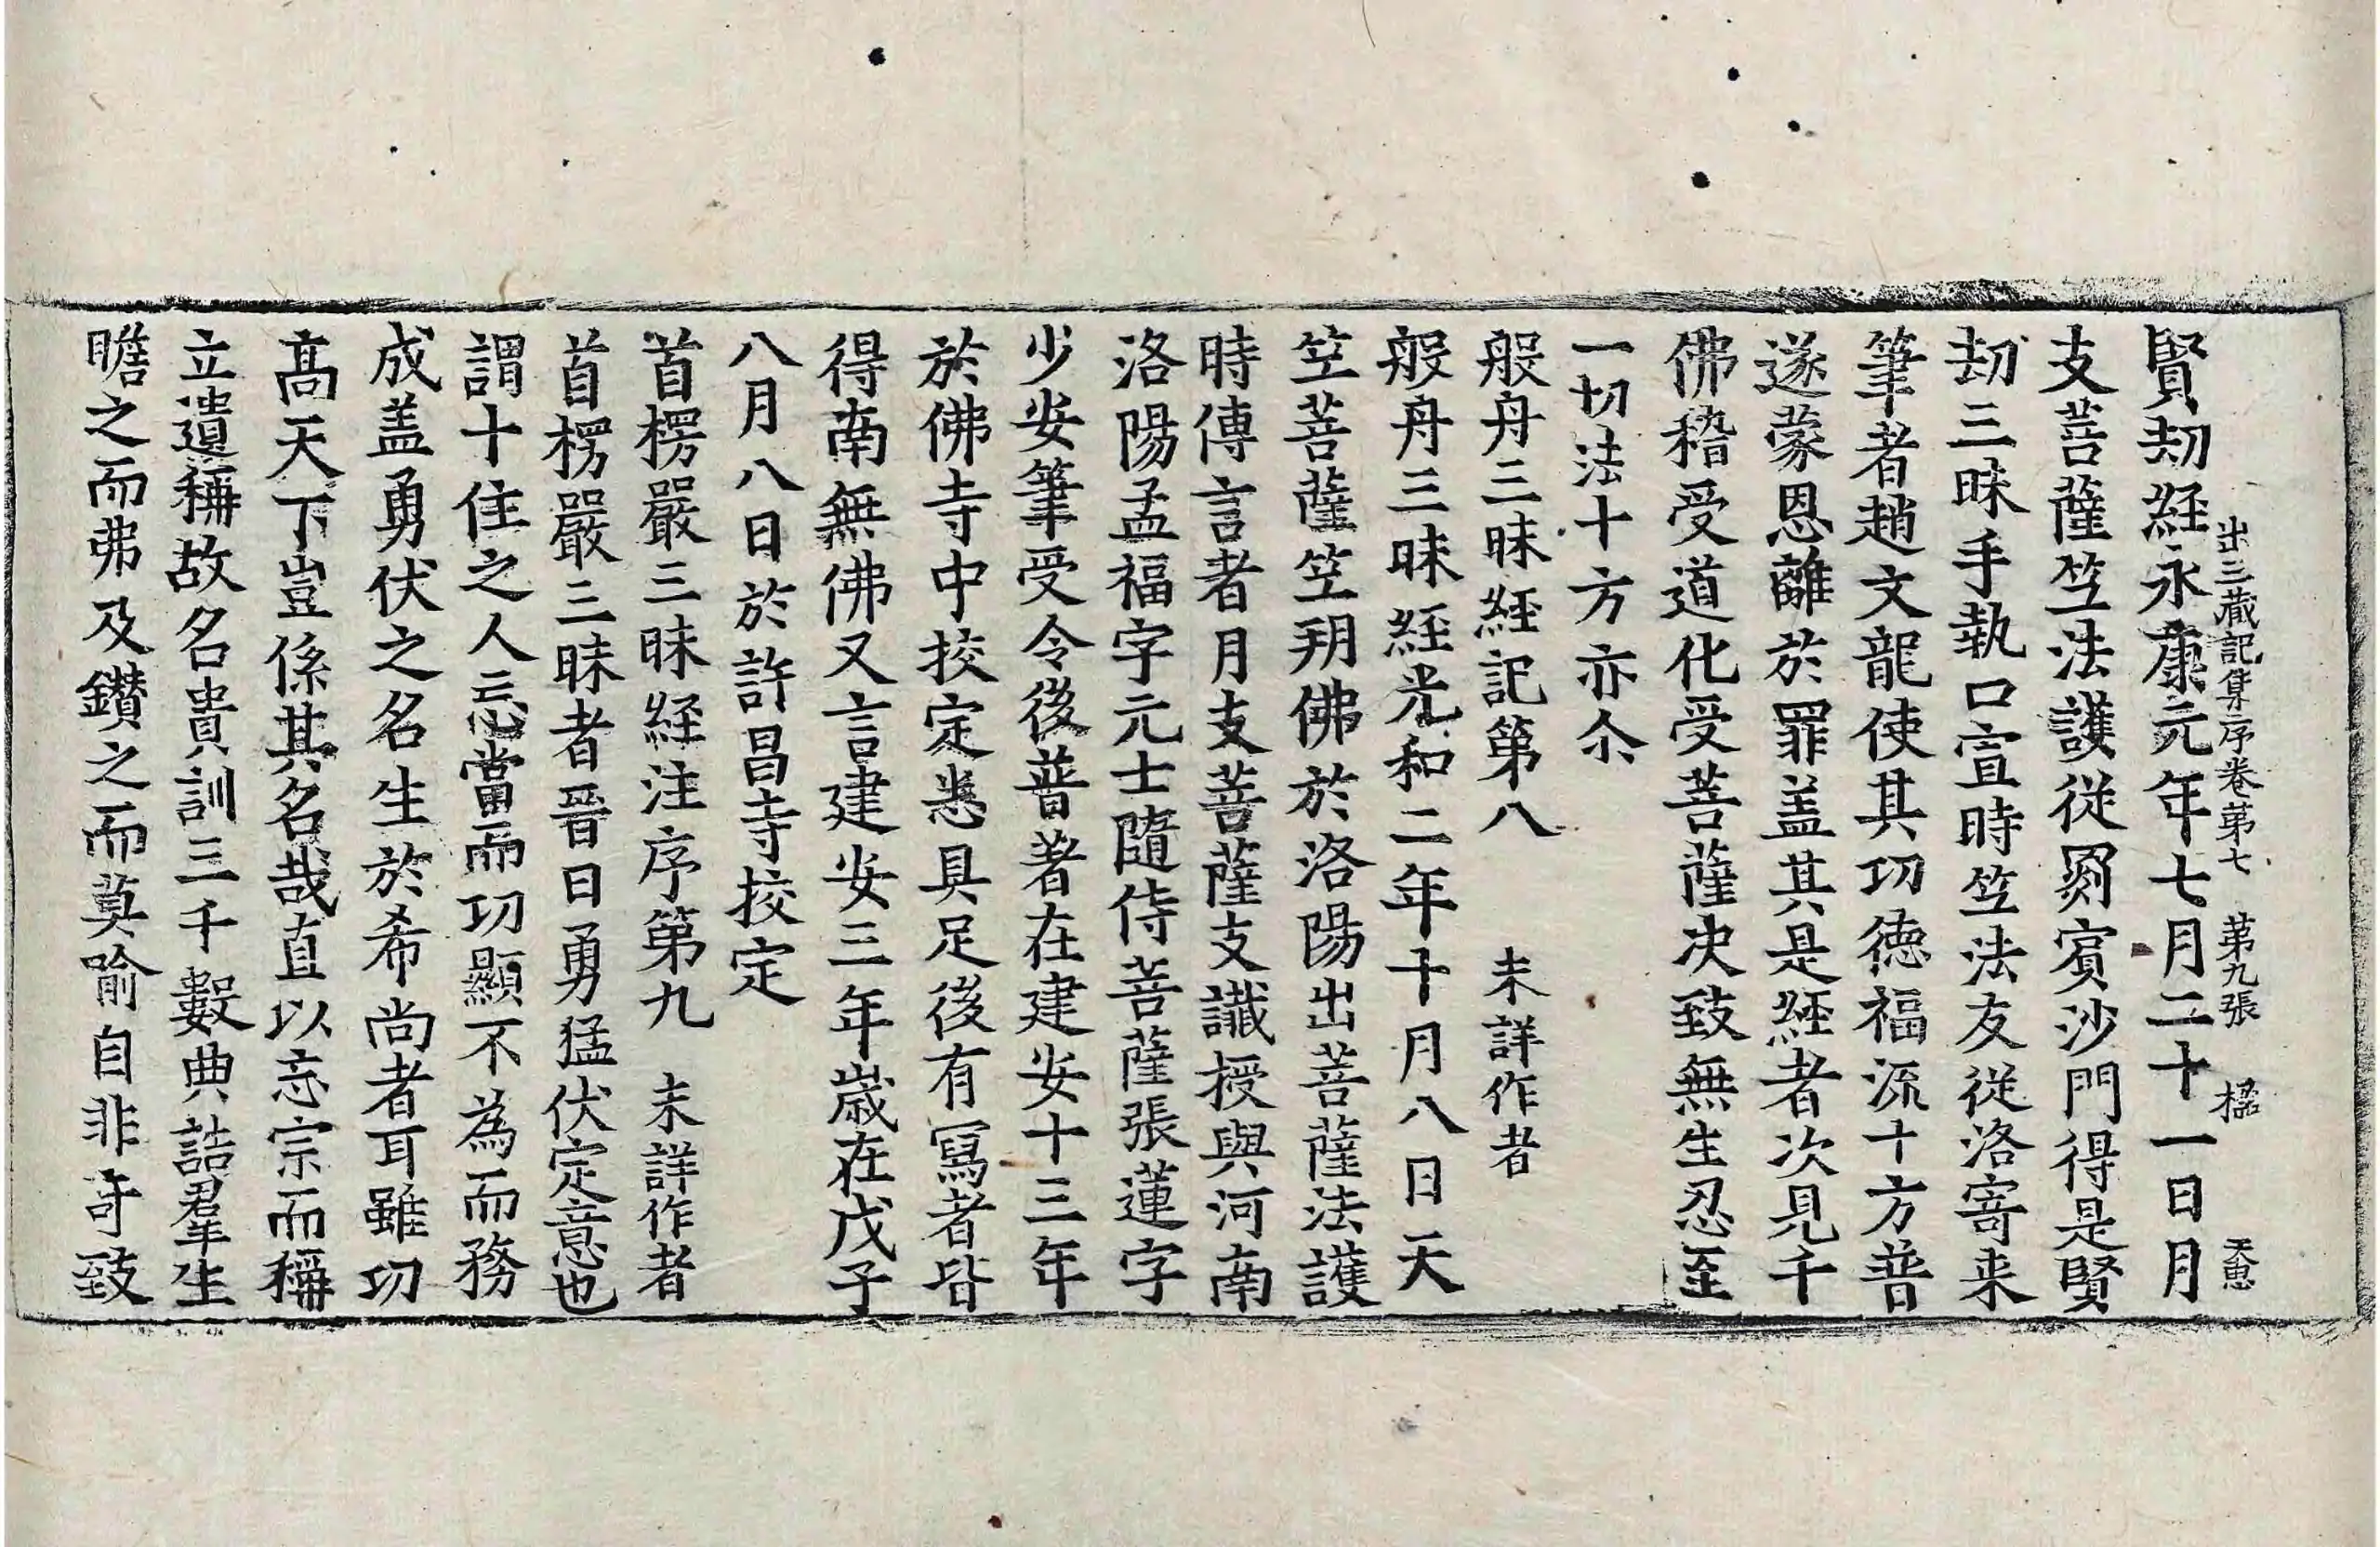 出三藏記集序卷第七　第九張　㯹　天惠
賢刼經永康元年七月二十一日月
支菩薩笁法護從罽賓沙門得是賢
刼三昧手執口宣時笁法友從洛寄来
筆者趙文龍使其功德福流十方普
遂蒙恩離於罪盖其是經者次見千
佛稽受道化受菩薩决致無生忍至
一切法十方亦尒
般舟三昧經記第八　未詳作者
般舟三昧經光和二年十月八日天
笁菩薩笁朔佛於洛陽出菩薩法護
時傳言者月支菩薩支讖授與河南
洛陽孟福字元士隨侍菩薩張蓮字
少安筆受令後普著在建安十三年
於佛寺中挍定悉具足後有冩者皆
得南無佛又言建安三年歲在戊子
八月八日於許昌寺挍定
首楞嚴三昧經注序第九　未詳作者
首楞嚴三昧者晉曰勇猛伏定意也
謂十住之人忘當而功顯不為而務
成盖勇伏之名生於希尚者耳雖功
髙天下豈係其名哉直以忘宗而稱
立遺稱故名貴訓三千數典誥羣生
瞻之而弗及鑽之而莫喻自非竒致